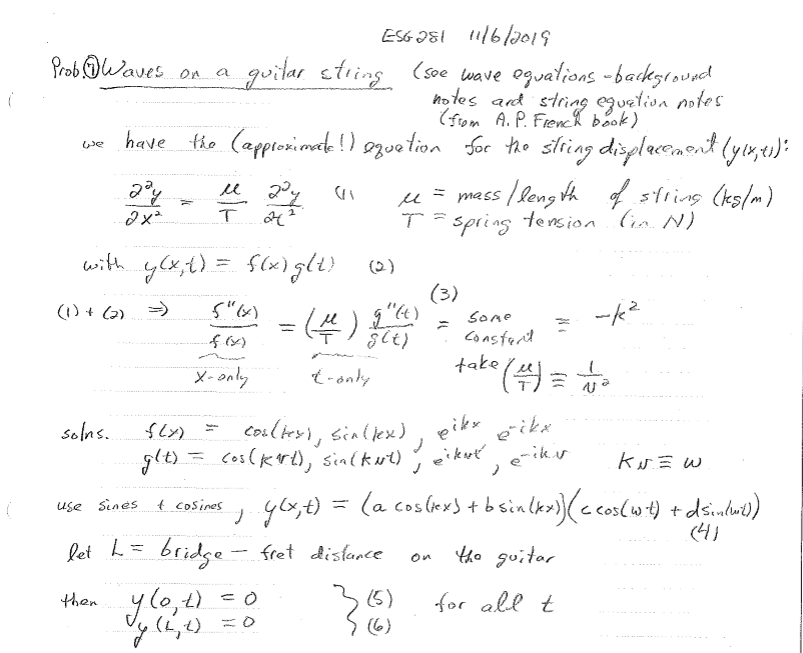 ESG 281 11/6/2019
Prob ① Waves on a guitar string (see wave equations - background
notes and string equation notes
(from A.P. French book)
we have the (approximate!) equation for the string displacement (y(x,t)):
∂²y/∂x² = μ/T ∂²y/∂t² (1) μ = mass/length of string (kg/m)
T = spring tension (in N)
with y(x,t) = f(x) g(t) (2)
(1) + (2) ⇒ f''(x)/f(x) = (μ/T) g''(t)/g(t) = some constant ≡ -k² (3)
x-only t-only take (μ/T) ≡ 1/v²
solns. f(x) = cos(kx), sin(kx), e^ikx, e^-ikx
g(t) = cos(kvt), sin(kvt), e^ikvt, e^-ikv kv ≡ ω
use sines + cosines, y(x,t) = (a cos(kx) + b sin(kx))(c cos(ωt) + d sin(ωt))
(4)
let L = bridge - fret distance on the guitar
then y(0,t) = 0 } (5) for all t
y(L,t) = 0 } (6)